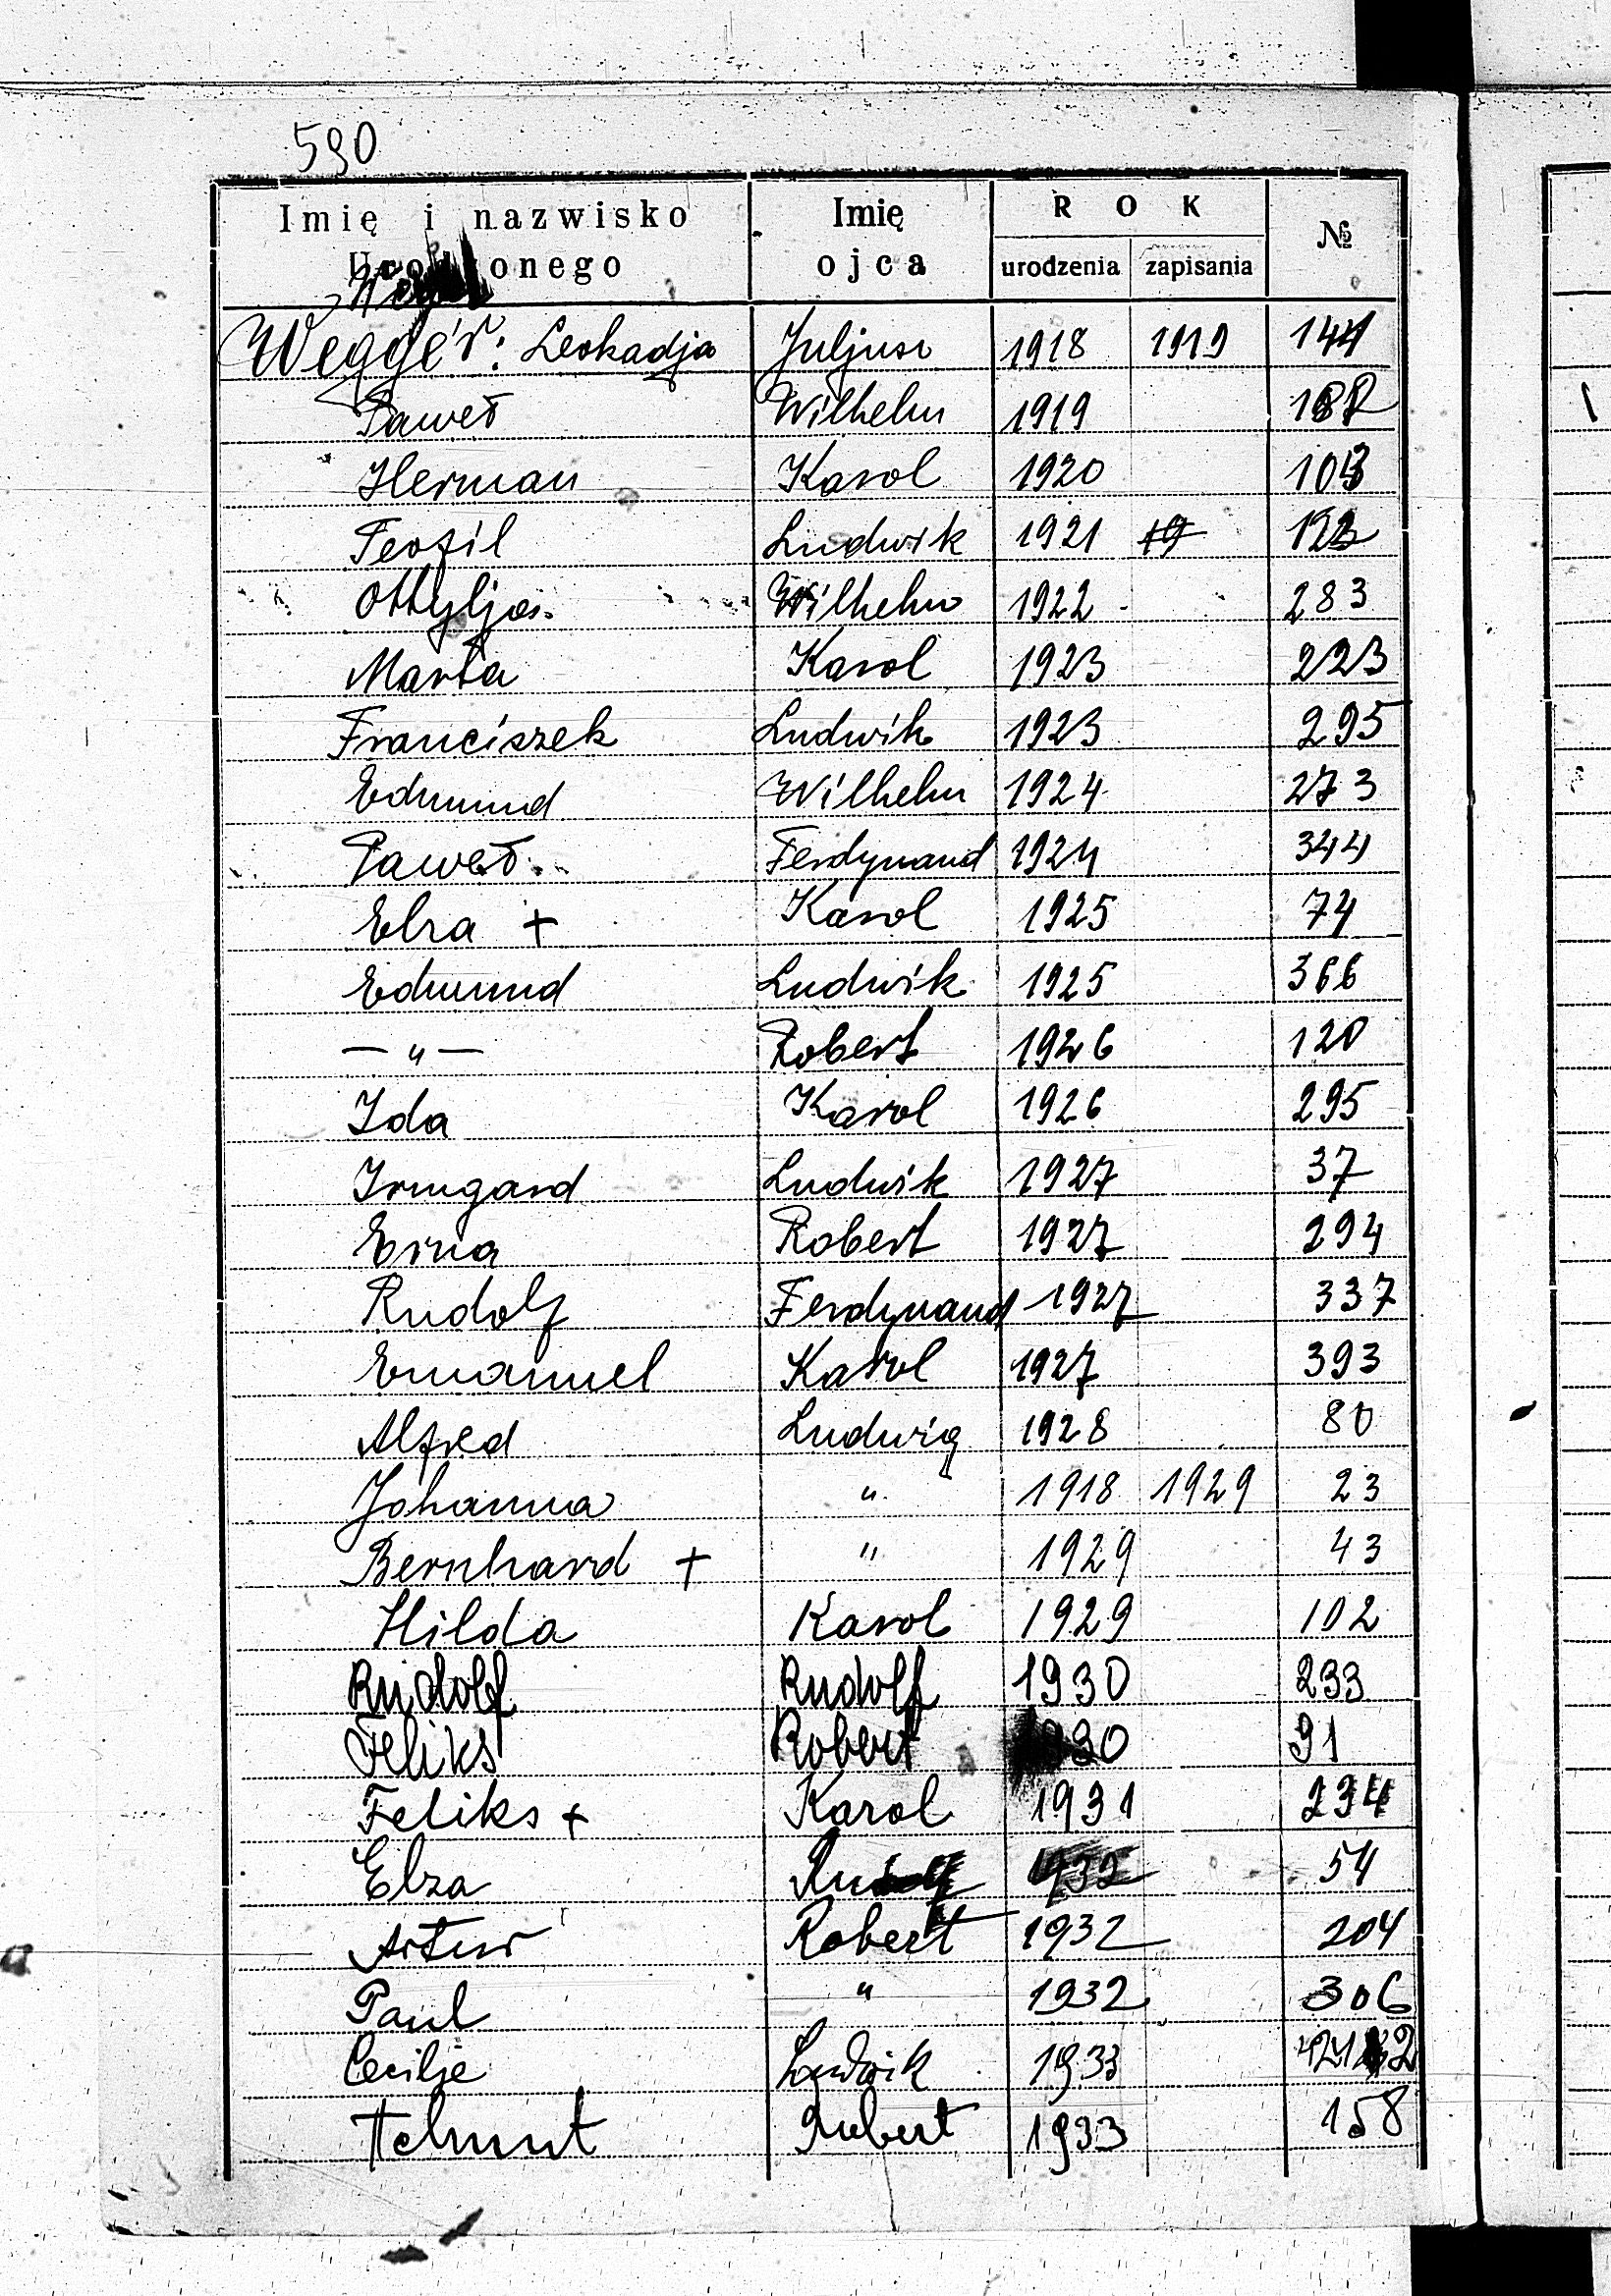 590
Imię i nazwisko Urodzonego Imię ojca ROK urodzenia zapisania №
Wegger: Leokadja Juljusz 1918 1919 144
Paweł Wilhelm 1919
Herman Karol 1920 103
Teofil Ludwik 1921 19 123
Ottylja Wilhelm 1922 283
Marta Karol 1923 223
Franciszek Ludwik 1923 295
Edmund Wilhelm 1924 273
Paweł Ferdynand 1924 344
Elza + Karol 1925 74
Edmund Ludwik 1925 366
— " — Robert 1926 120
Ida Karol 1926 295
Irmgard Ludwik 1927 37
Erna Robert 1927 294
Rudolf Ferdynand 1927 337
Emanuel Karol 1927 393
Alfred Ludwig 1928 80
Johanna " 1918 1929 23
Bernhard + " 1929 43
Hilda Karol 1929 102
Rudolf Rudolf 1930 233
Feliks Robert 1930 91
Feliks + Karol 1931 234
Elza 1932 54
Artur Robert 1932 204
Paul " 1932 306
Cecilje Ludwik 1933
Helmut Robert 1933 158